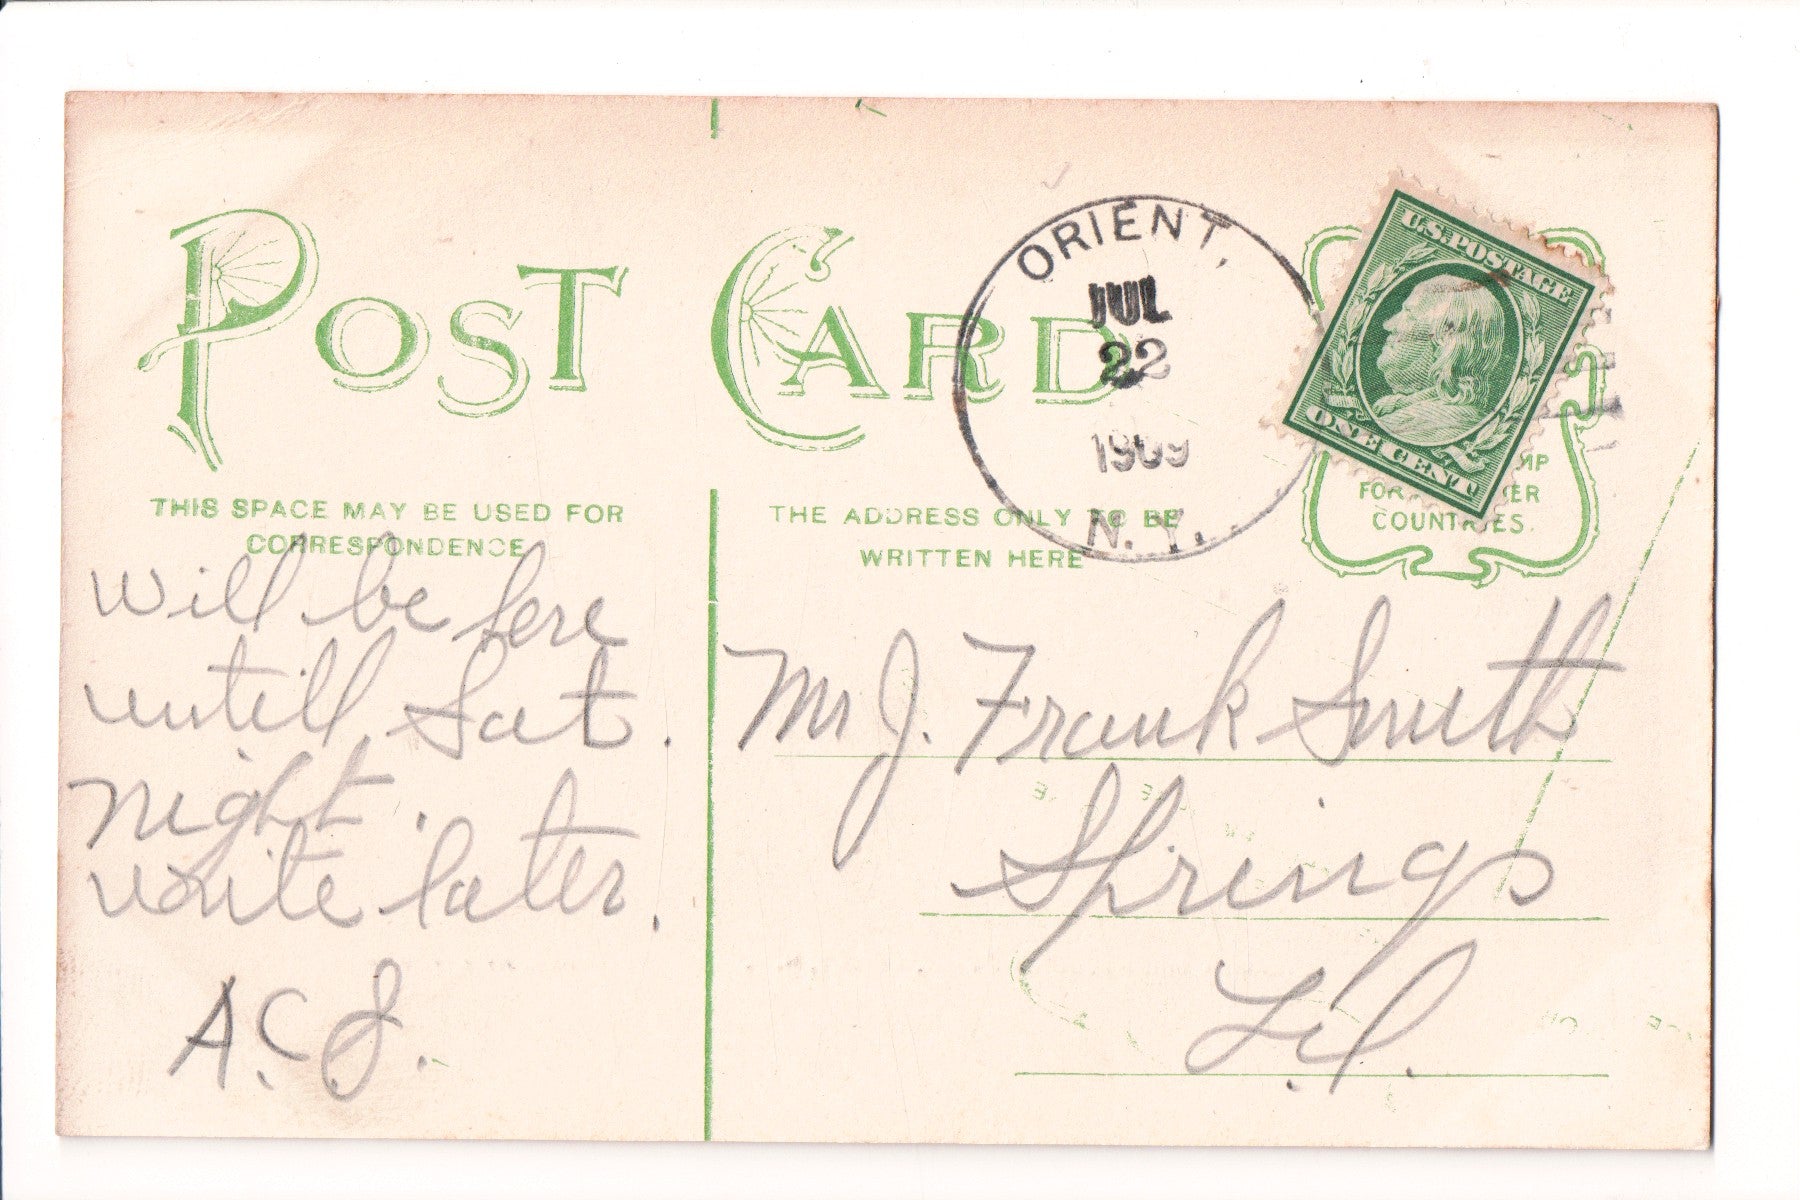 POST CARD
THIS SPACE MAY BE USED FOR
CORRESPONDENCE
THE ADDRESS ONLY TO BE
WRITTEN HERE
ORIENT,
JUL
22
1909
N. Y.
U.S. POSTAGE
ONE CENT
COUNTRIES.
Will be here
untill Sat.
night.
write later.
A.C.J.
Mr J. Frank Smith
Springs
L.I.